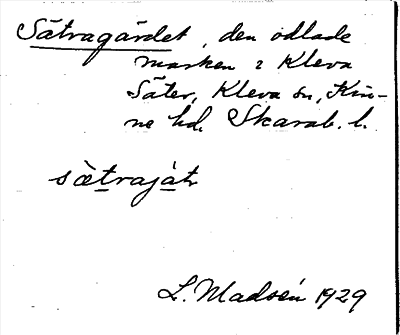 Sätragärdet, den odlade
marken i Kleva
Säter, Kleva sn, Kin-
ne hd. Skarab. l.
sætrajátr
L. Madsén 1929